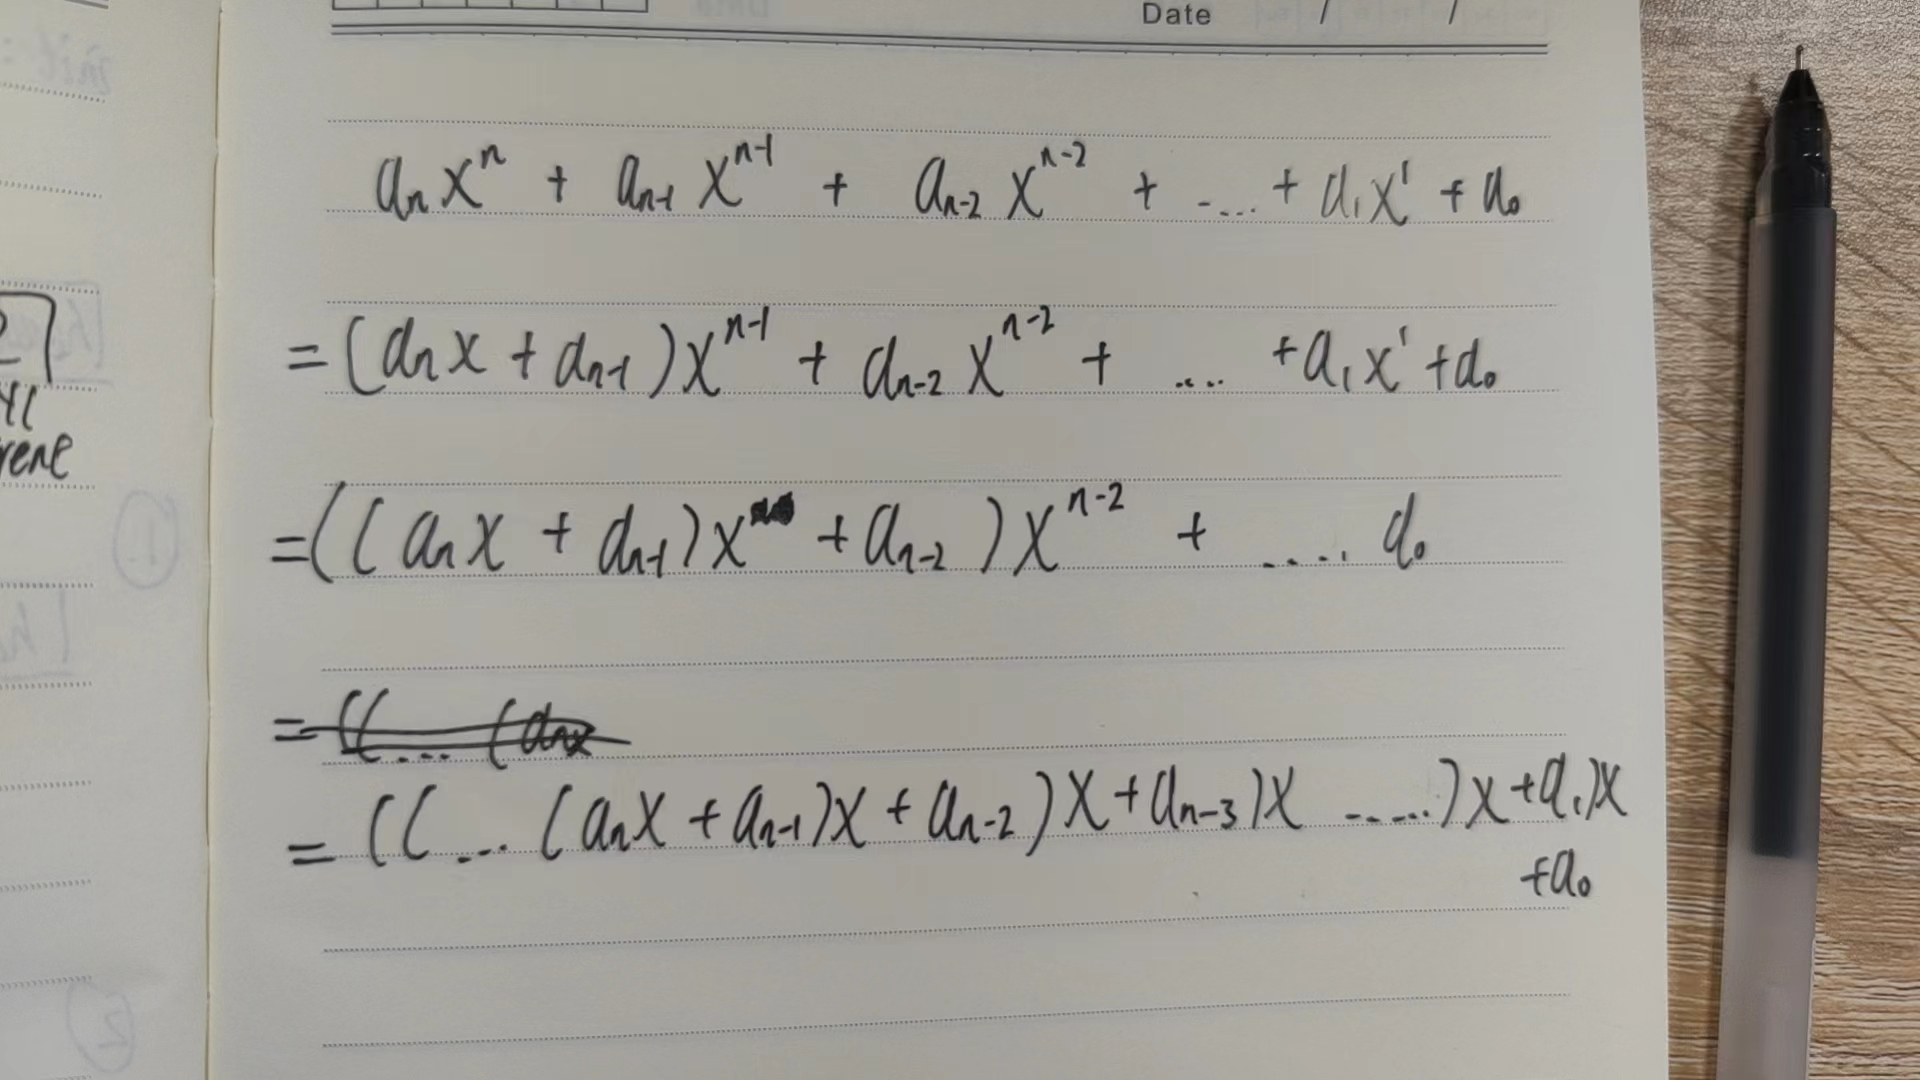 Date / /
aₙxⁿ + aₙ₋₁xⁿ⁻¹ + aₙ₋₂xⁿ⁻² + ..... + a₁x¹ + a₀
= (aₙx + aₙ₋₁)xⁿ⁻¹ + aₙ₋₂xⁿ⁻² + .... + a₁x¹ + a₀
= ((aₙx + aₙ₋₁)x + aₙ₋₂)xⁿ⁻² + ..... a₀
= ((... (aₙx
= ((... (aₙx + aₙ₋₁)x + aₙ₋₂)x + aₙ₋₃)x ......)x + a₁)x
+ a₀